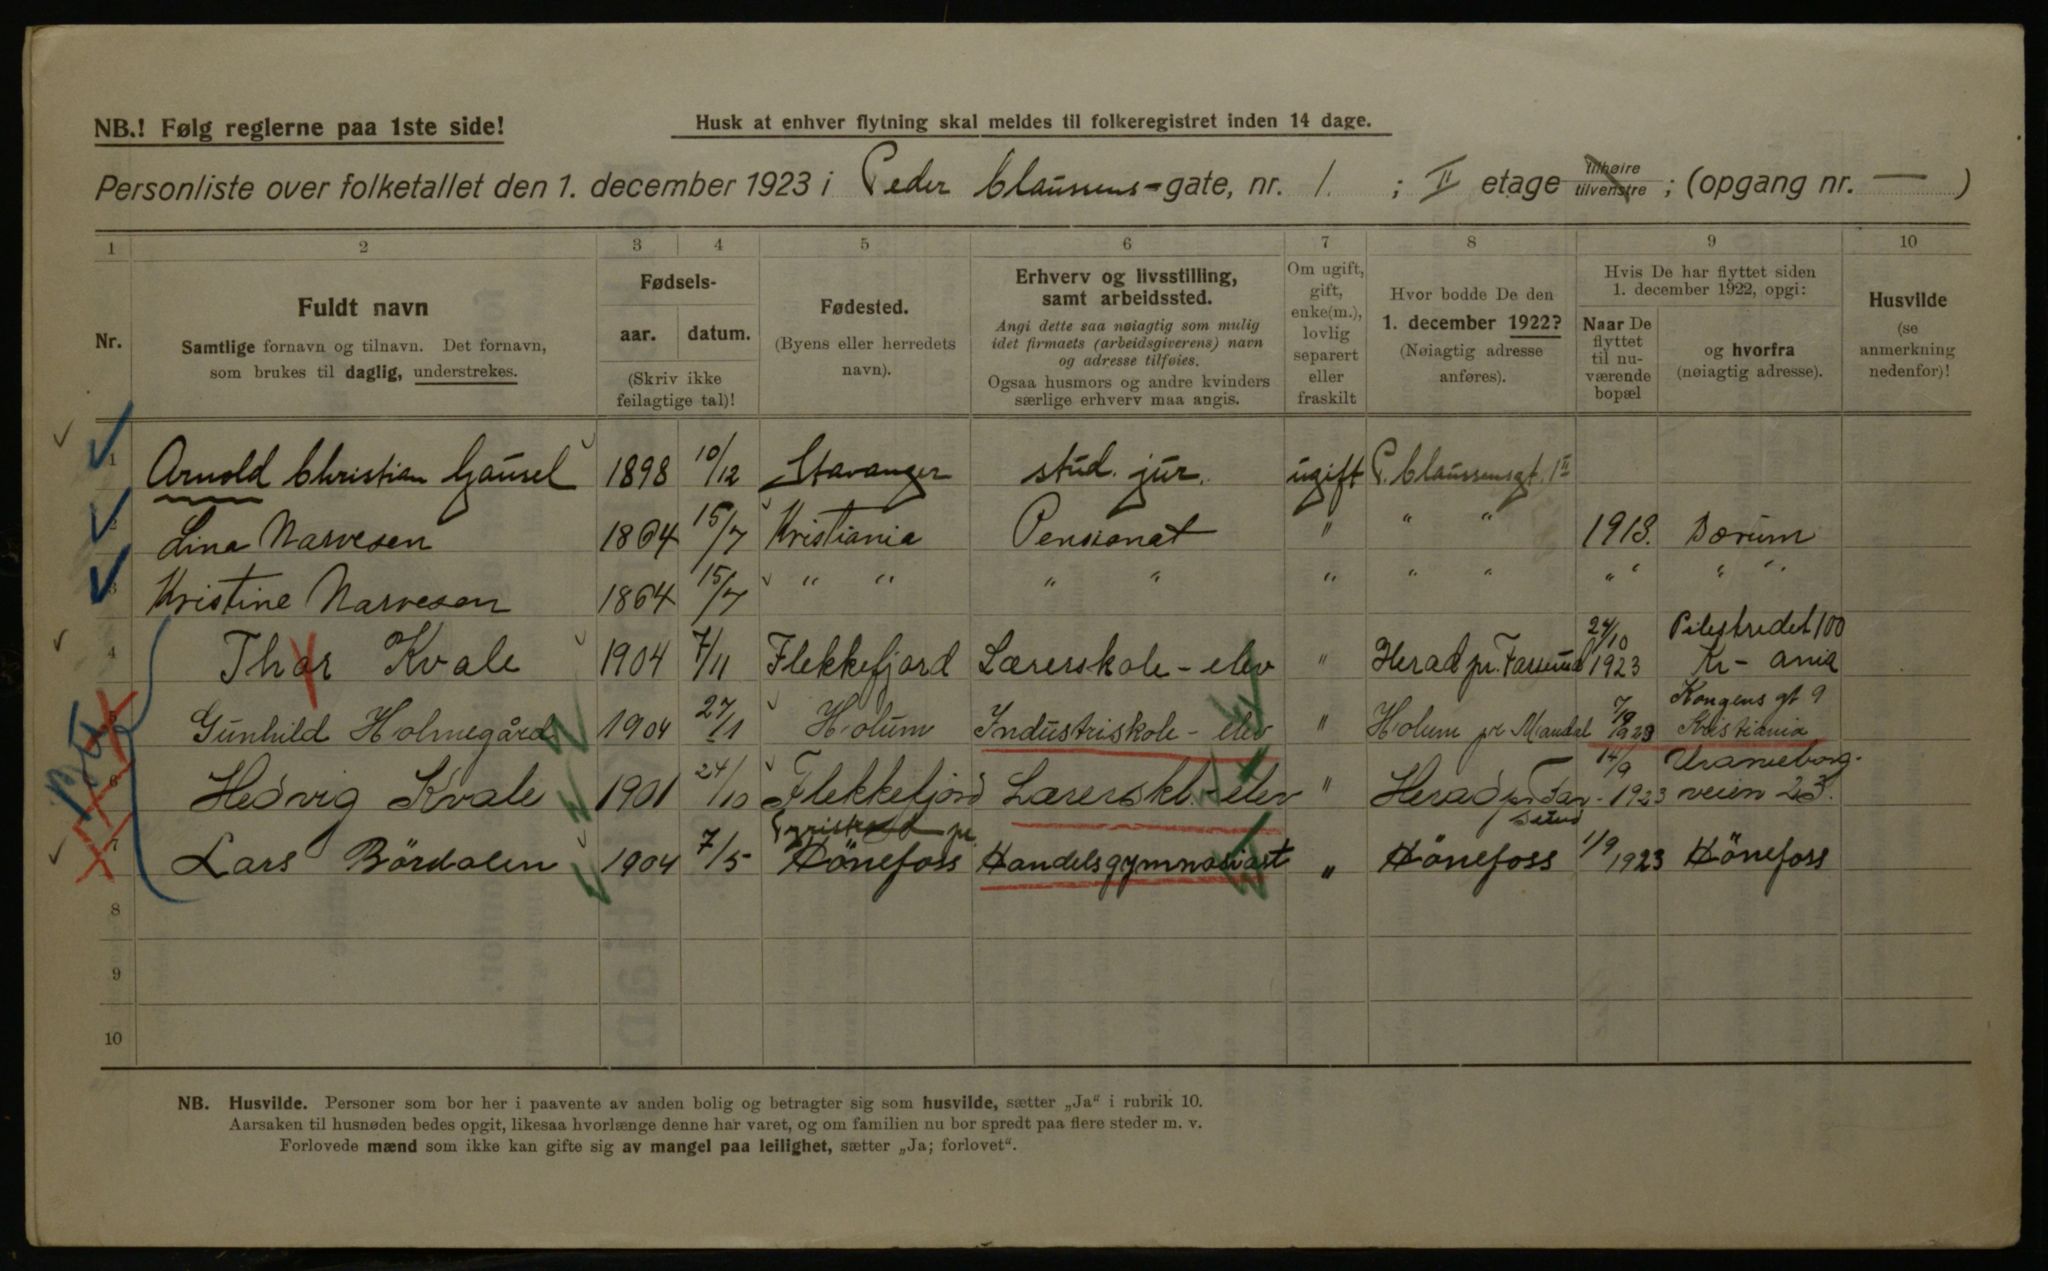 NB.! Følg reglerne paa 1ste side!
Husk at enhver flytning skal meldes til folkeregistret inden 14 dage.
Personliste over folketallet den 1. december 1923 i Peder Claussens-gate, nr. 1. ; II etage tilhøire tilvenstre ; (opgang nr. — )
1 2 3 4 5 6 7 8 9 10
Nr.
Fuldt navn
Samtlige fornavn og tilnavn. Det fornavn,
som brukes til daglig, understrekes.
Fødsels-
aar. datum.
(Skriv ikke
feilagtige tal)!
Fødested.
(Byens eller herredets
navn).
Erhverv og livsstilling,
samt arbeidssted.
Angi dette saa nøiagtig som mulig
idet firmaets (arbeidsgiverens) navn
og adresse tilføies.
Ogsaa husmors og andre kvinders
særlige erhverv maa angis.
Om ugift,
gift,
enke(m.),
lovlig
separert
eller
fraskilt
Hvor bodde De den
1. december 1922?
(Nøiagtig adresse
anføres).
Hvis De har flyttet siden
1. december 1922, opgi:
Naar De
flyttet
til nu-
værende
bopæl
og hvorfra
(nøiagtig adresse).
Husvilde
(se
anmerkning
nedenfor)!
1 Arnold Christian Gausel 1898 10/12 Stavanger stud. jur. ugift P. Claussensgt. 1 II
2 Lina Narvesen 1864 15/7 Kristiania Pensionat " " " 1913. Bærum
3 Kristine Narvesen 1864 15/7 " " " " " " " " " " "
4 Thor Kvale 1904 7/11 Flekkefjord Lærerskole-elev " Herad pr. Farsund 24/10 1923 Pilestredet 100 Kr-ania
5 Gunhild Holmegård 1904 27/1 Holum Industriskole-elev " Holum pr Mandal 1923 Kongens gt 9 Kristiania
6 Hedvig Kvale 1901 24/10 Flekkefjord Lærerskl.-elev " Herad pr Farsund 14/9 1923 Uranieborg-veien 23.
7 Lars Bördalen 1904 7/5 pr. Hönefoss Handelsgymnasiast " Hönefoss 1/9 1923 Hönefoss
8
9
10
NB. Husvilde. Personer som bor her i paavente av anden bolig og betragter sig som husvilde, sætter „Ja" i rubrik 10.
Aarsaken til husnøden bedes opgit, likesaa hvorlænge denne har varet, og om familien nu bor spredt paa flere steder m. v.
Forlovede mænd som ikke kan gifte sig av mangel paa leilighet, sætter „Ja; forlovet".